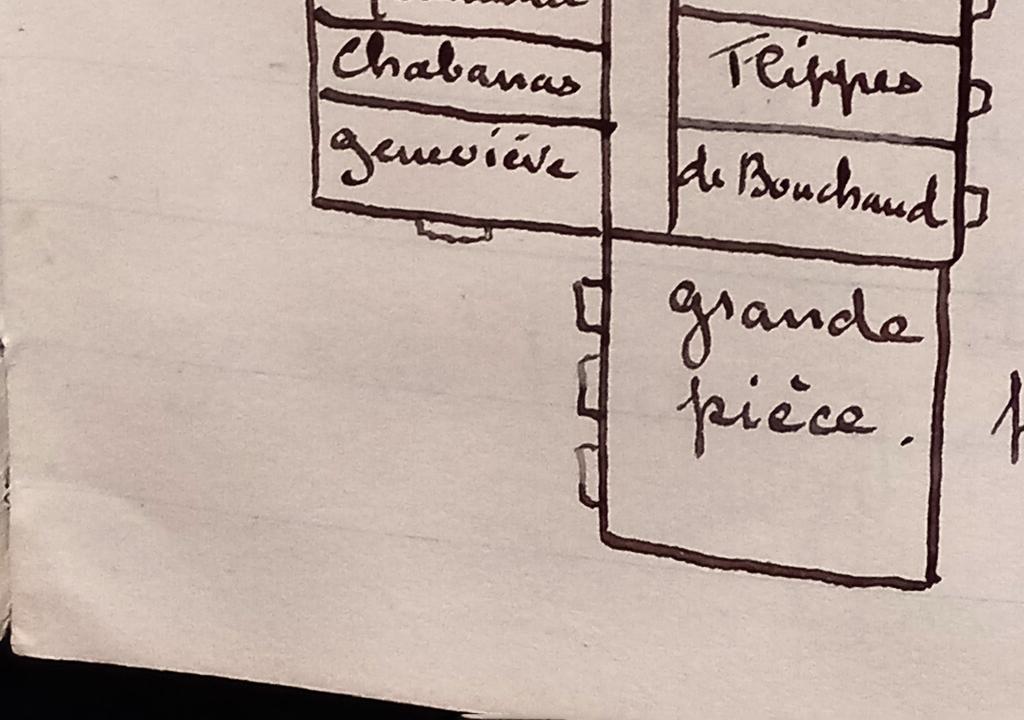 Chabanas
geneviève
Flippes
de Bouchaud
grande
pièce.